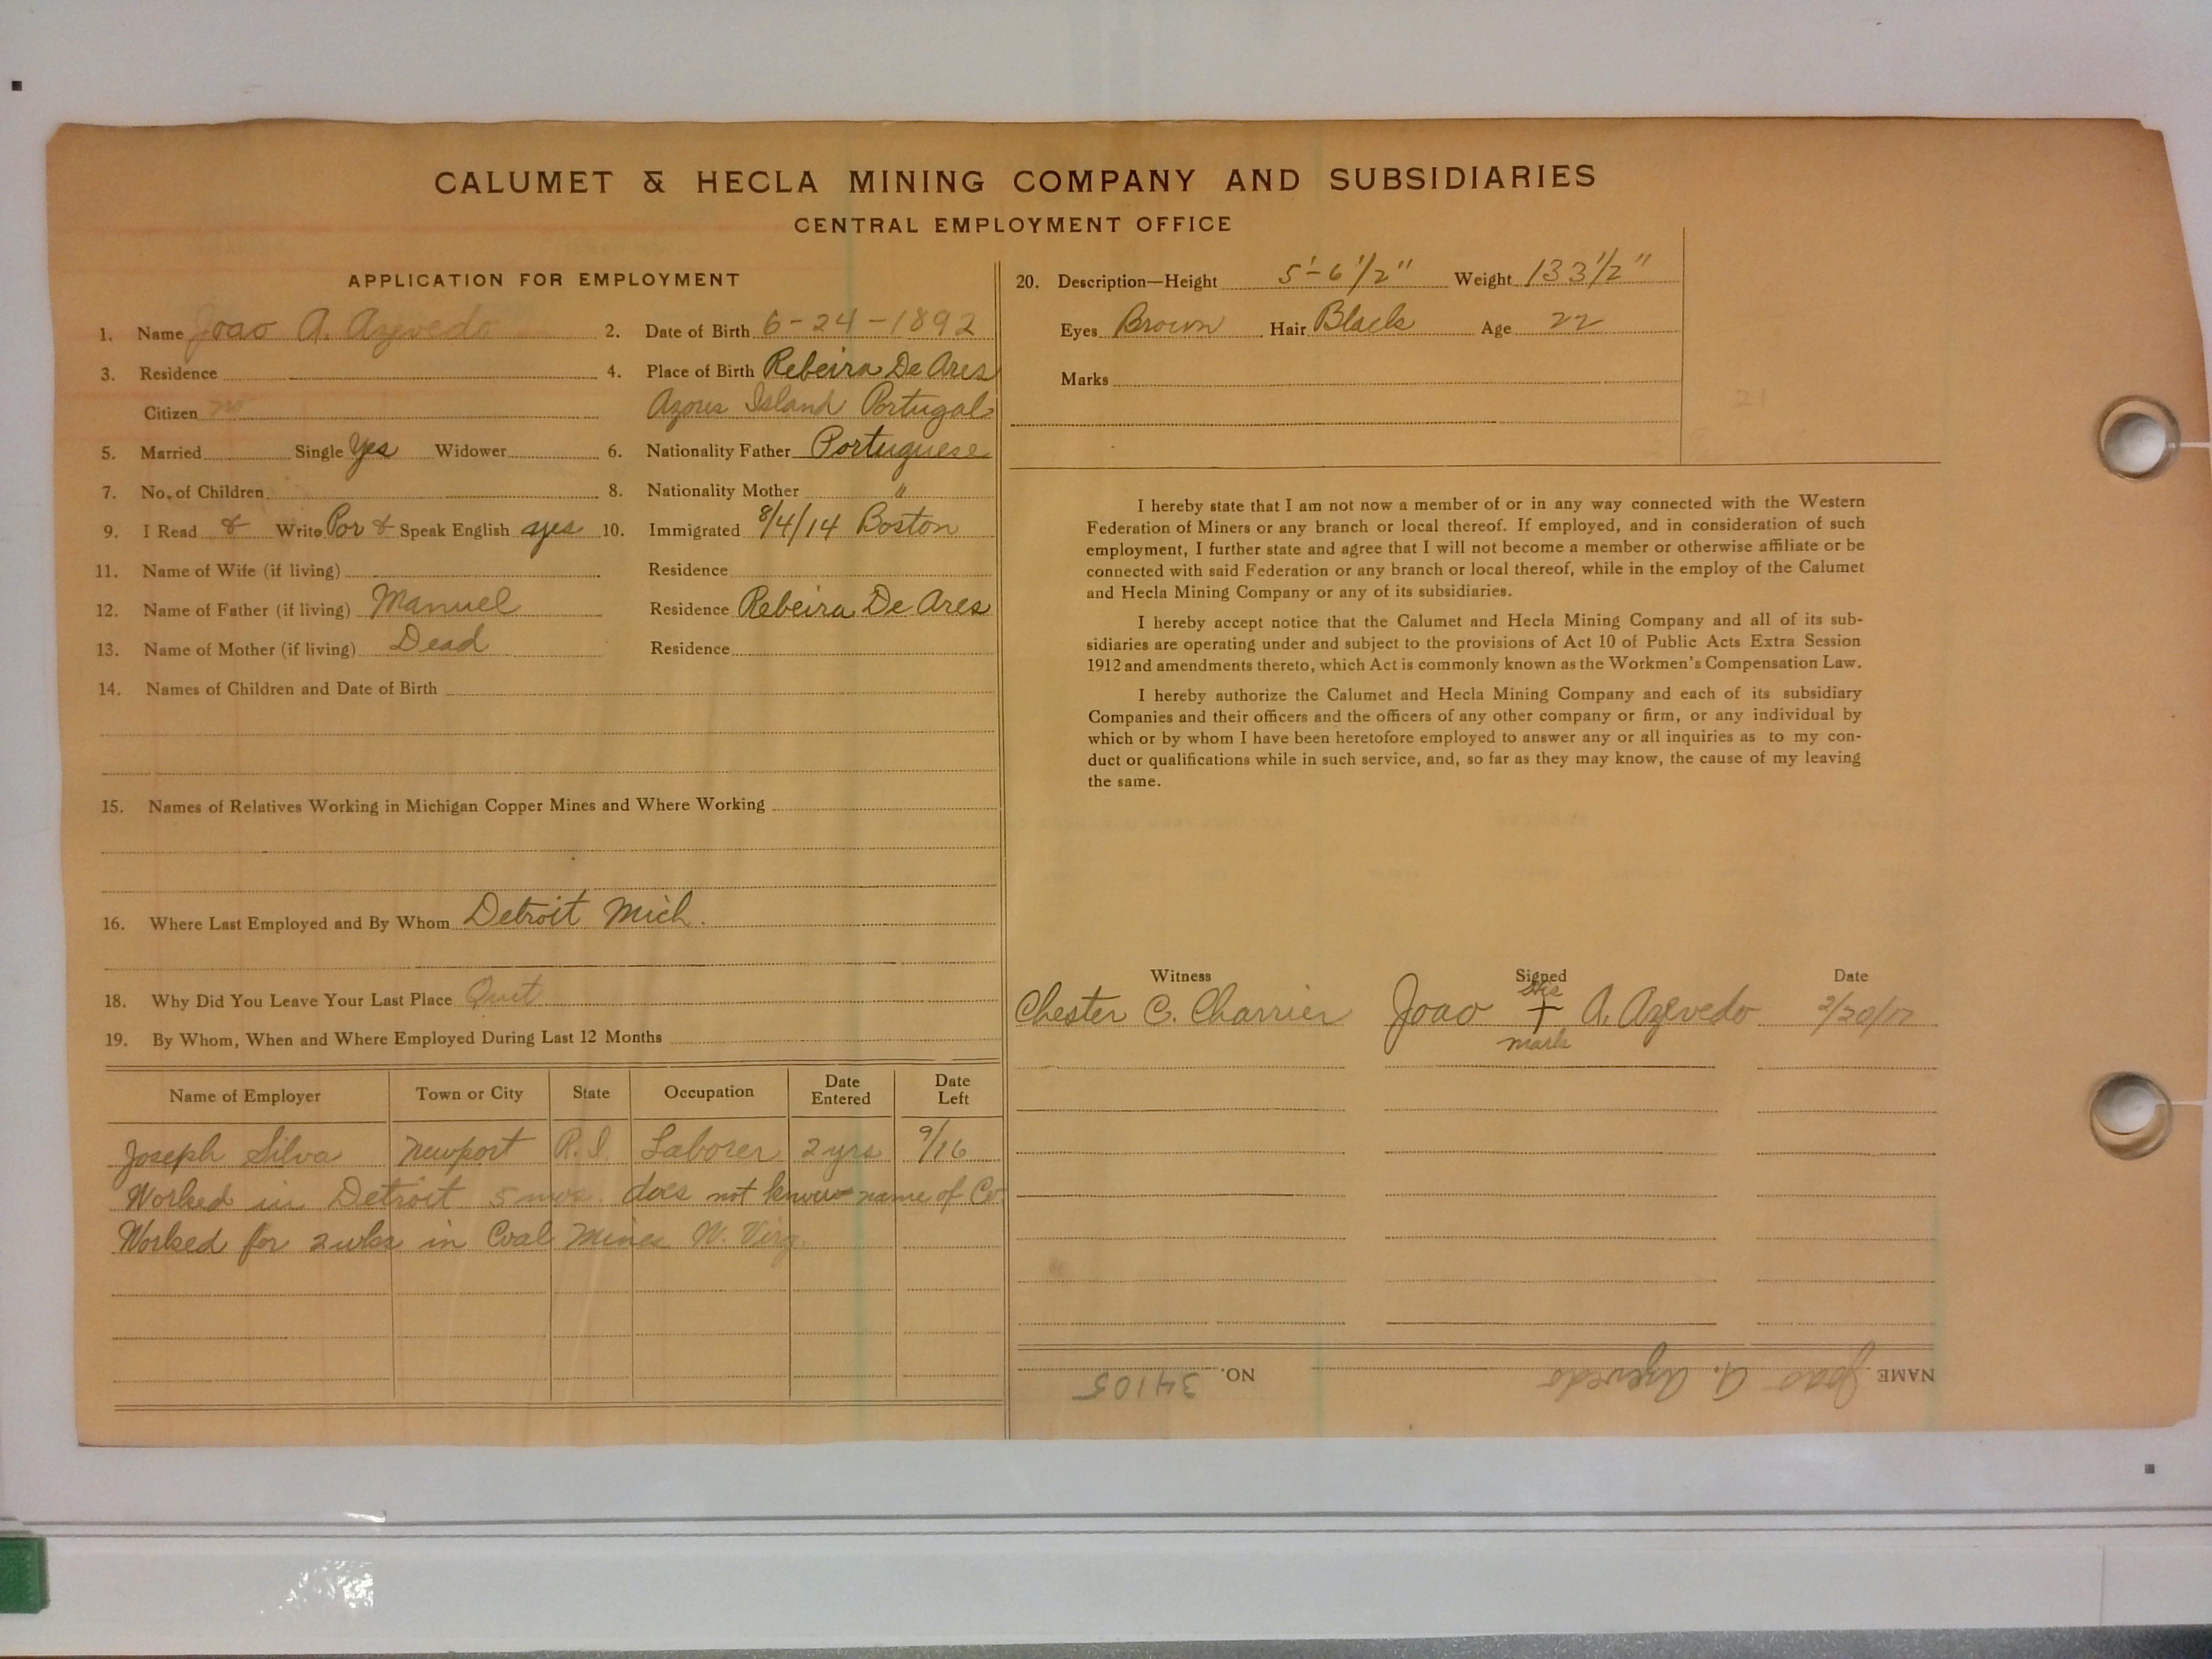 CALUMET & HECLA MINING COMPANY AND SUBSIDIARIES
CENTRAL EMPLOYMENT OFFICE
APPLICATION FOR EMPLOYMENT
1. Name Joao A. Azevedo 2. Date of Birth 6-24-1892
3. Residence 4. Place of Birth Rebeira De Ares
Citizen no Azores Island Portugal
5. Married Single Yes Widower 6. Nationality Father Portuguese
7. No. of Children 8. Nationality Mother "
9. I Read & Write Por & Speak English yes 10. Immigrated 8/4/14 Boston
11. Name of Wife (if living) Residence
12. Name of Father (if living) Manuel Residence Rebeira De Ares
13. Name of Mother (if living) Dead Residence
14. Names of Children and Date of Birth
15. Names of Relatives Working in Michigan Copper Mines and Where Working
16. Where Last Employed and By Whom Detroit Mich.
18. Why Did You Leave Your Last Place Quit
19. By Whom, When and Where Employed During Last 12 Months
Name of Employer Town or City State Occupation Date Entered Date Left
Joseph Silva Newport R.I. Laborer 2 yrs 9/16
Worked in Detroit 5 mos. does not know name of Co.
Worked for 2 wks in Coal Mines W. Virg.
20. Description—Height 5'-6 1/2" Weight 133 1/2"
Eyes Brown Hair Black Age 22
Marks
21
I hereby state that I am not now a member of or in any way connected with the Western
Federation of Miners or any branch or local thereof. If employed, and in consideration of such
employment, I further state and agree that I will not become a member or otherwise affiliate or be
connected with said Federation or any branch or local thereof, while in the employ of the Calumet
and Hecla Mining Company or any of its subsidiaries.
I hereby accept notice that the Calumet and Hecla Mining Company and all of its sub-
sidiaries are operating under and subject to the provisions of Act 10 of Public Acts Extra Session
1912 and amendments thereto, which Act is commonly known as the Workmen's Compensation Law.
I hereby authorize the Calumet and Hecla Mining Company and each of its subsidiary
Companies and their officers and the officers of any other company or firm, or any individual by
which or by whom I have been heretofore employed to answer any or all inquiries as to my con-
duct or qualifications while in such service, and, so far as they may know, the cause of my leaving
the same.
Witness Signed Date
His
Chester C. Charrier Joao + A. Azevedo 2/20/17
mark
NAME Joao A. Azevedo NO. 34105